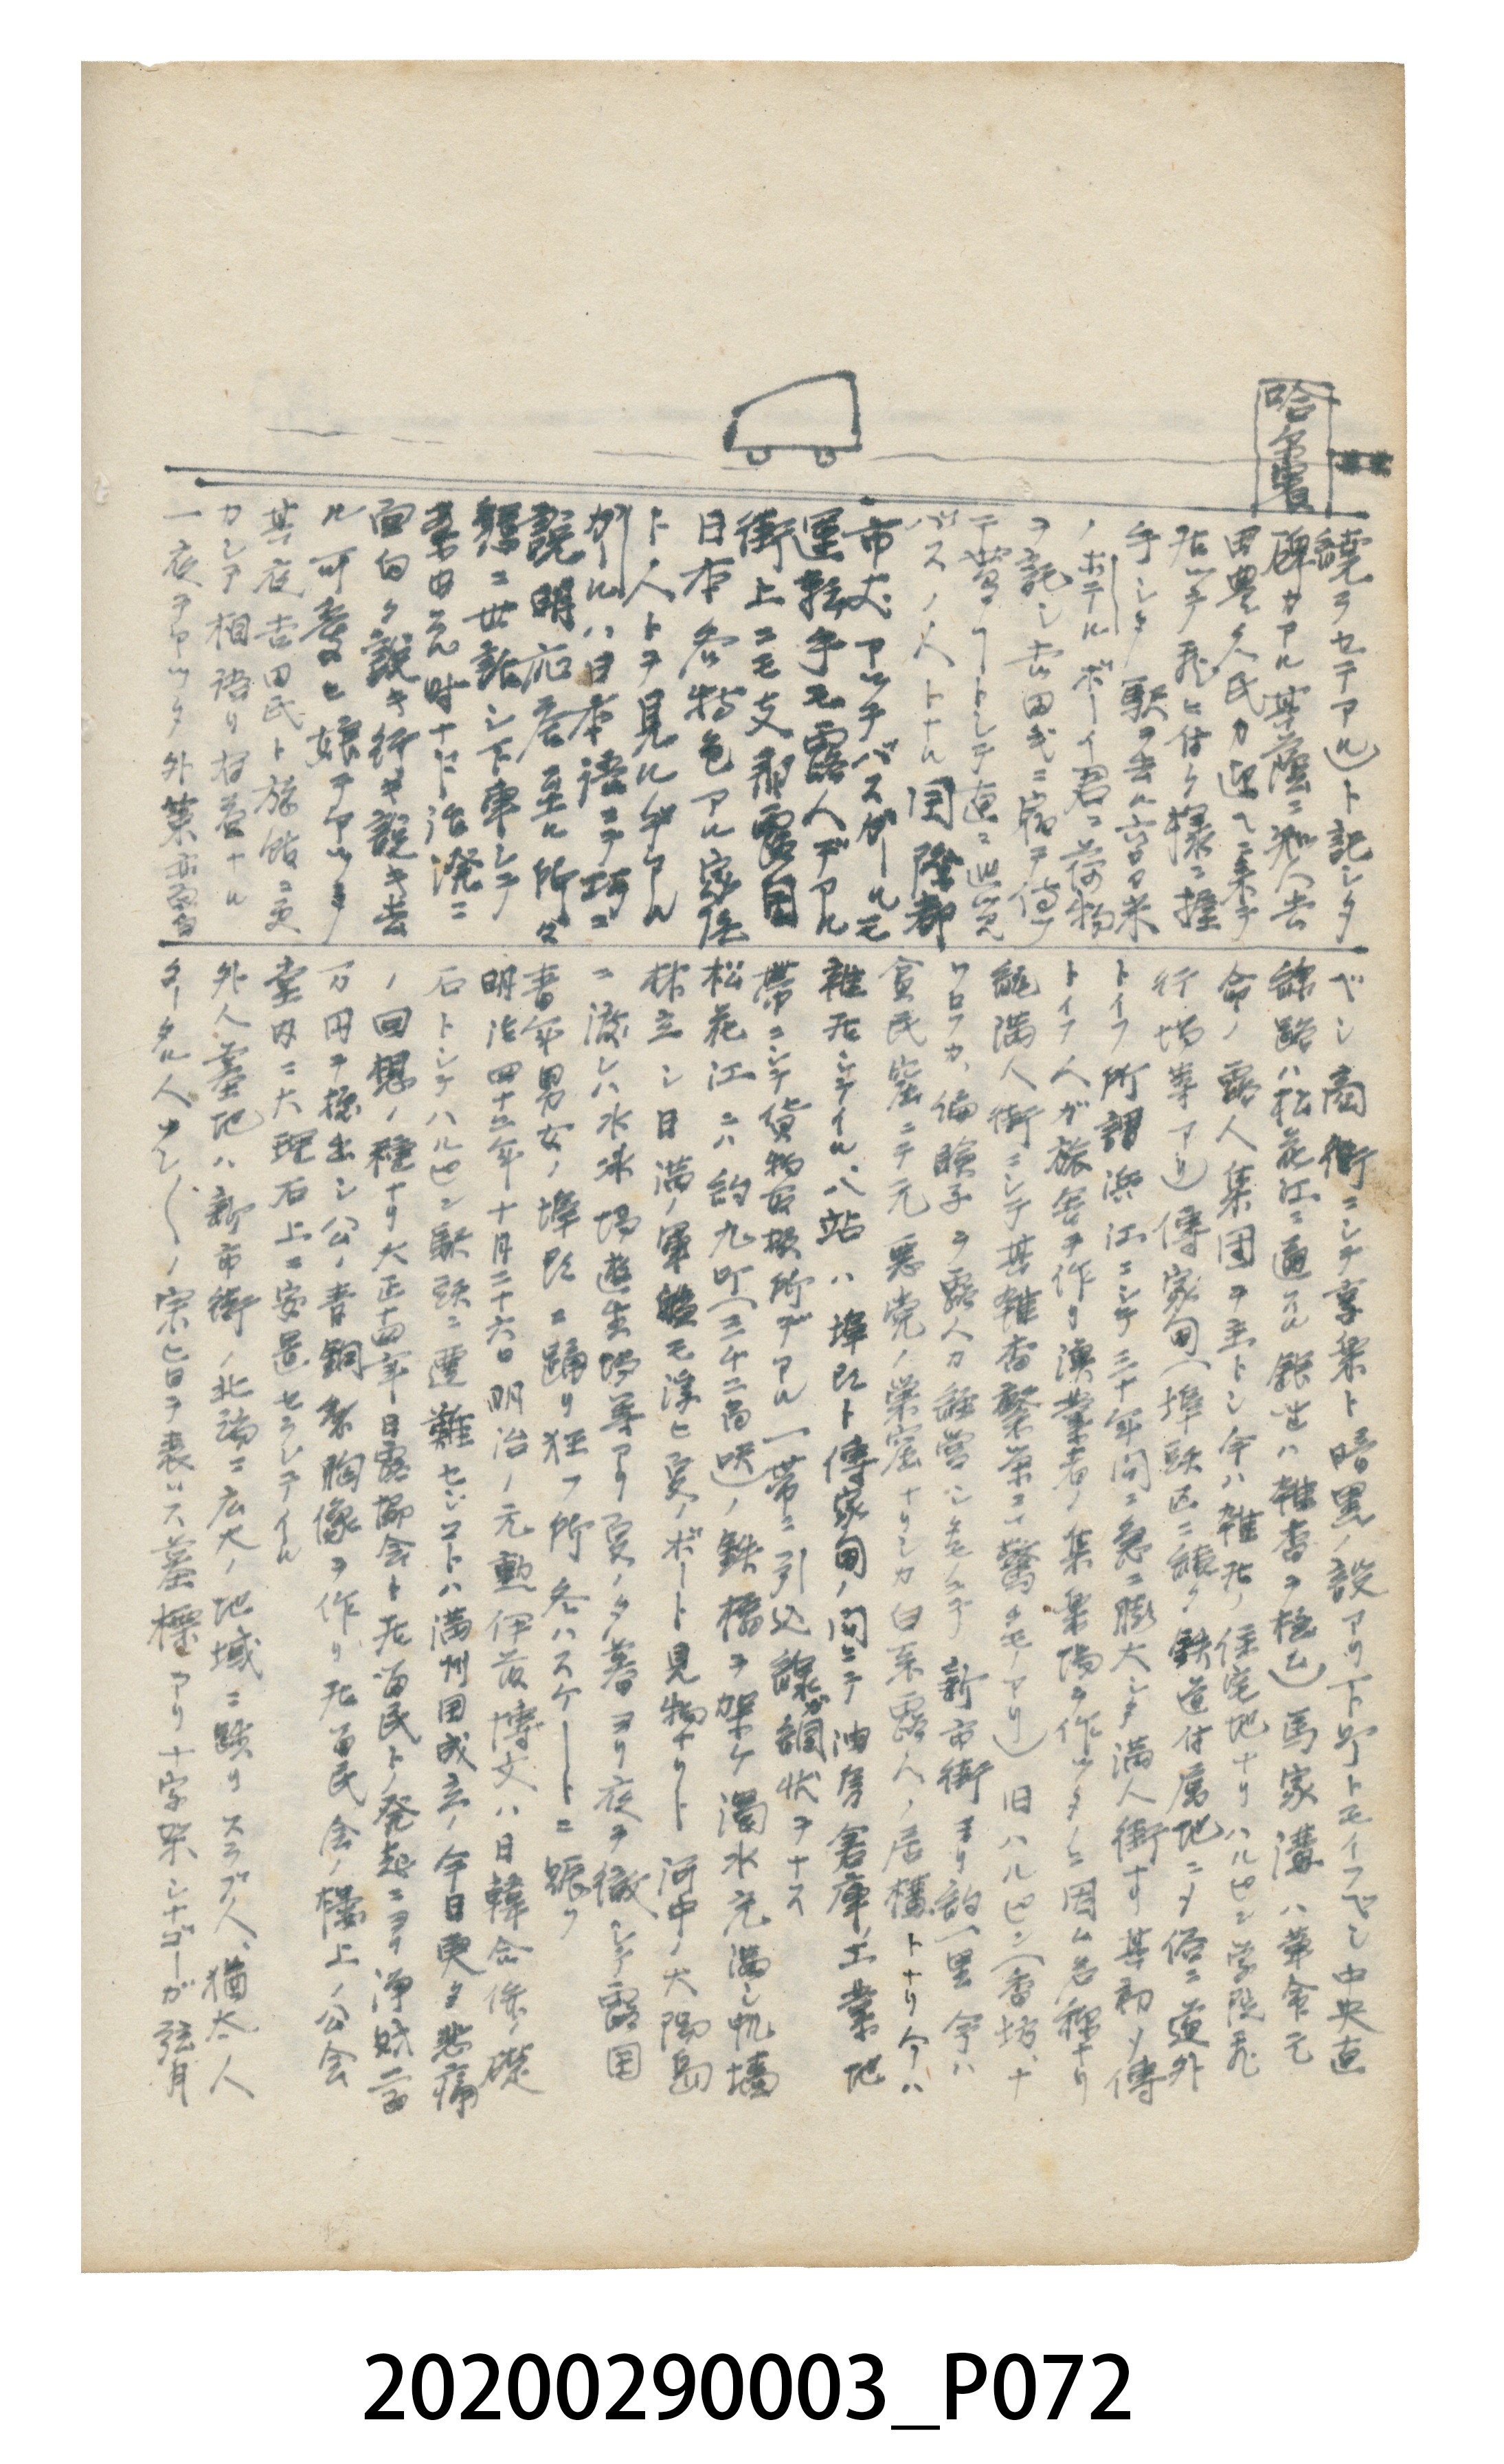 哈爾賓
繞ラセテアル)ト記シタ
碑ガアル 其蔭ニ
田豊久氏ガ迎ヘニ来テ
居ツテ飛ビ付ク様ニ握
手シタ 駅ヲ去ル六百米
ノホテルボーイ君ニ荷物
ヲ託シ吉田氏ニ
テ 直ニ巡覧
バスノ人トナル 国際都
市丈アツテバスガールモ
運転手モ露人デアル
街上ニモ支那露国
日本各特色アル家作
ト人トヲ見ル
ガールハ日本語ニテ巧ニ
説明応答至ル所々
懇ニ世話シ下車シテ
モ 活溌ニ
面白ク説キ行キ説キ去
ル可愛ヒ娘デアツタ
其夜吉田氏ト旅館ニ
カシテ相語リ
一夜デアツタ 外
ベシ 商街ニシテ享楽ト暗黒ノ設アリ 下町トモイフベシ 中央直
線路ハ松花江ニ通ズル 雑沓ヲ極ム) 馬家溝ハ革命元
命ノ露人集団ヲ主トシ今ハ雑居ノ住宅地ナリ ハルピン学院飛
行場等アリ) 傅家甸(埠頭区ニ続ク鉄道付属地ニ 俗ニ道外
トイフ所謂浜江ニシテ三十年間ニ急ニ膨大シタ満人街ナリ 其初メ傅
トイフ人ガ旅舎ヲ作リ漁業者ノ集楽場ヲ作ツタルニ因ム名称ナリ
純満人街ニシテ其雑沓繁栄ニ驚クモノアリ) 旧ハルピン(香坊、ナ
新市街ヨリ約一里 今ハ
貧民窟ニテ元悪党ノ巣窟ナリシガ白系露人ノ居構トナリ今ハ
雑居シテイル、八站ハ埠頭ト傅家甸ノ間ニテ油房倉庫ノ工業地
帯ニシテ貨物 所デアル 一帯ニ引込線ガ網状ヲナス
松花江ニハ約九町(三千二百呎)ノ鉄橋ヲ架ケ濁水充満シ帆檣
林立シ日満ノ軍艦モ浮ビ夏ノボート見物ナリト 河中ノ太陽島
ニ渡レバ水泳場遊生場等アリ 夏ノ夕暮ヨリ夜ヲ徹シテ露国
青年男女ノ 踊リ狂フ所 冬ハスケートニ賑フ
明治四十二年十月二十六日明治ノ元勲伊藤博文ハ日韓合併ノ礎
石トシテハルピン駅頭ニ遭難セシコトハ満州国成立ノ今日更タ悲痛
ノ回想ノ種ナリ 大正十四年日露協会ト在留民トノ発起ニヨリ浄財二
万円ヲ拠出シ公ノ青銅製胸像ヲ作リ在留民会ノ楼上ノ公会
堂内ニ大理石上ニ安置セラレテイル
外人墓地ハ新市街ノ北端ニ広大ノ地域ニ跨リスラブ人、猶太人
タータル人 ノ宗旨ヲ表ハス墓標アリ 十字架シナゴーガ弦月
20200290003_P072